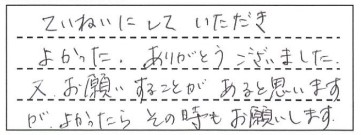 ていねいにして いただき
よかった。ありがとうございました。
又、お願いすることが あると思います
が、よかったら その時も お願いします。